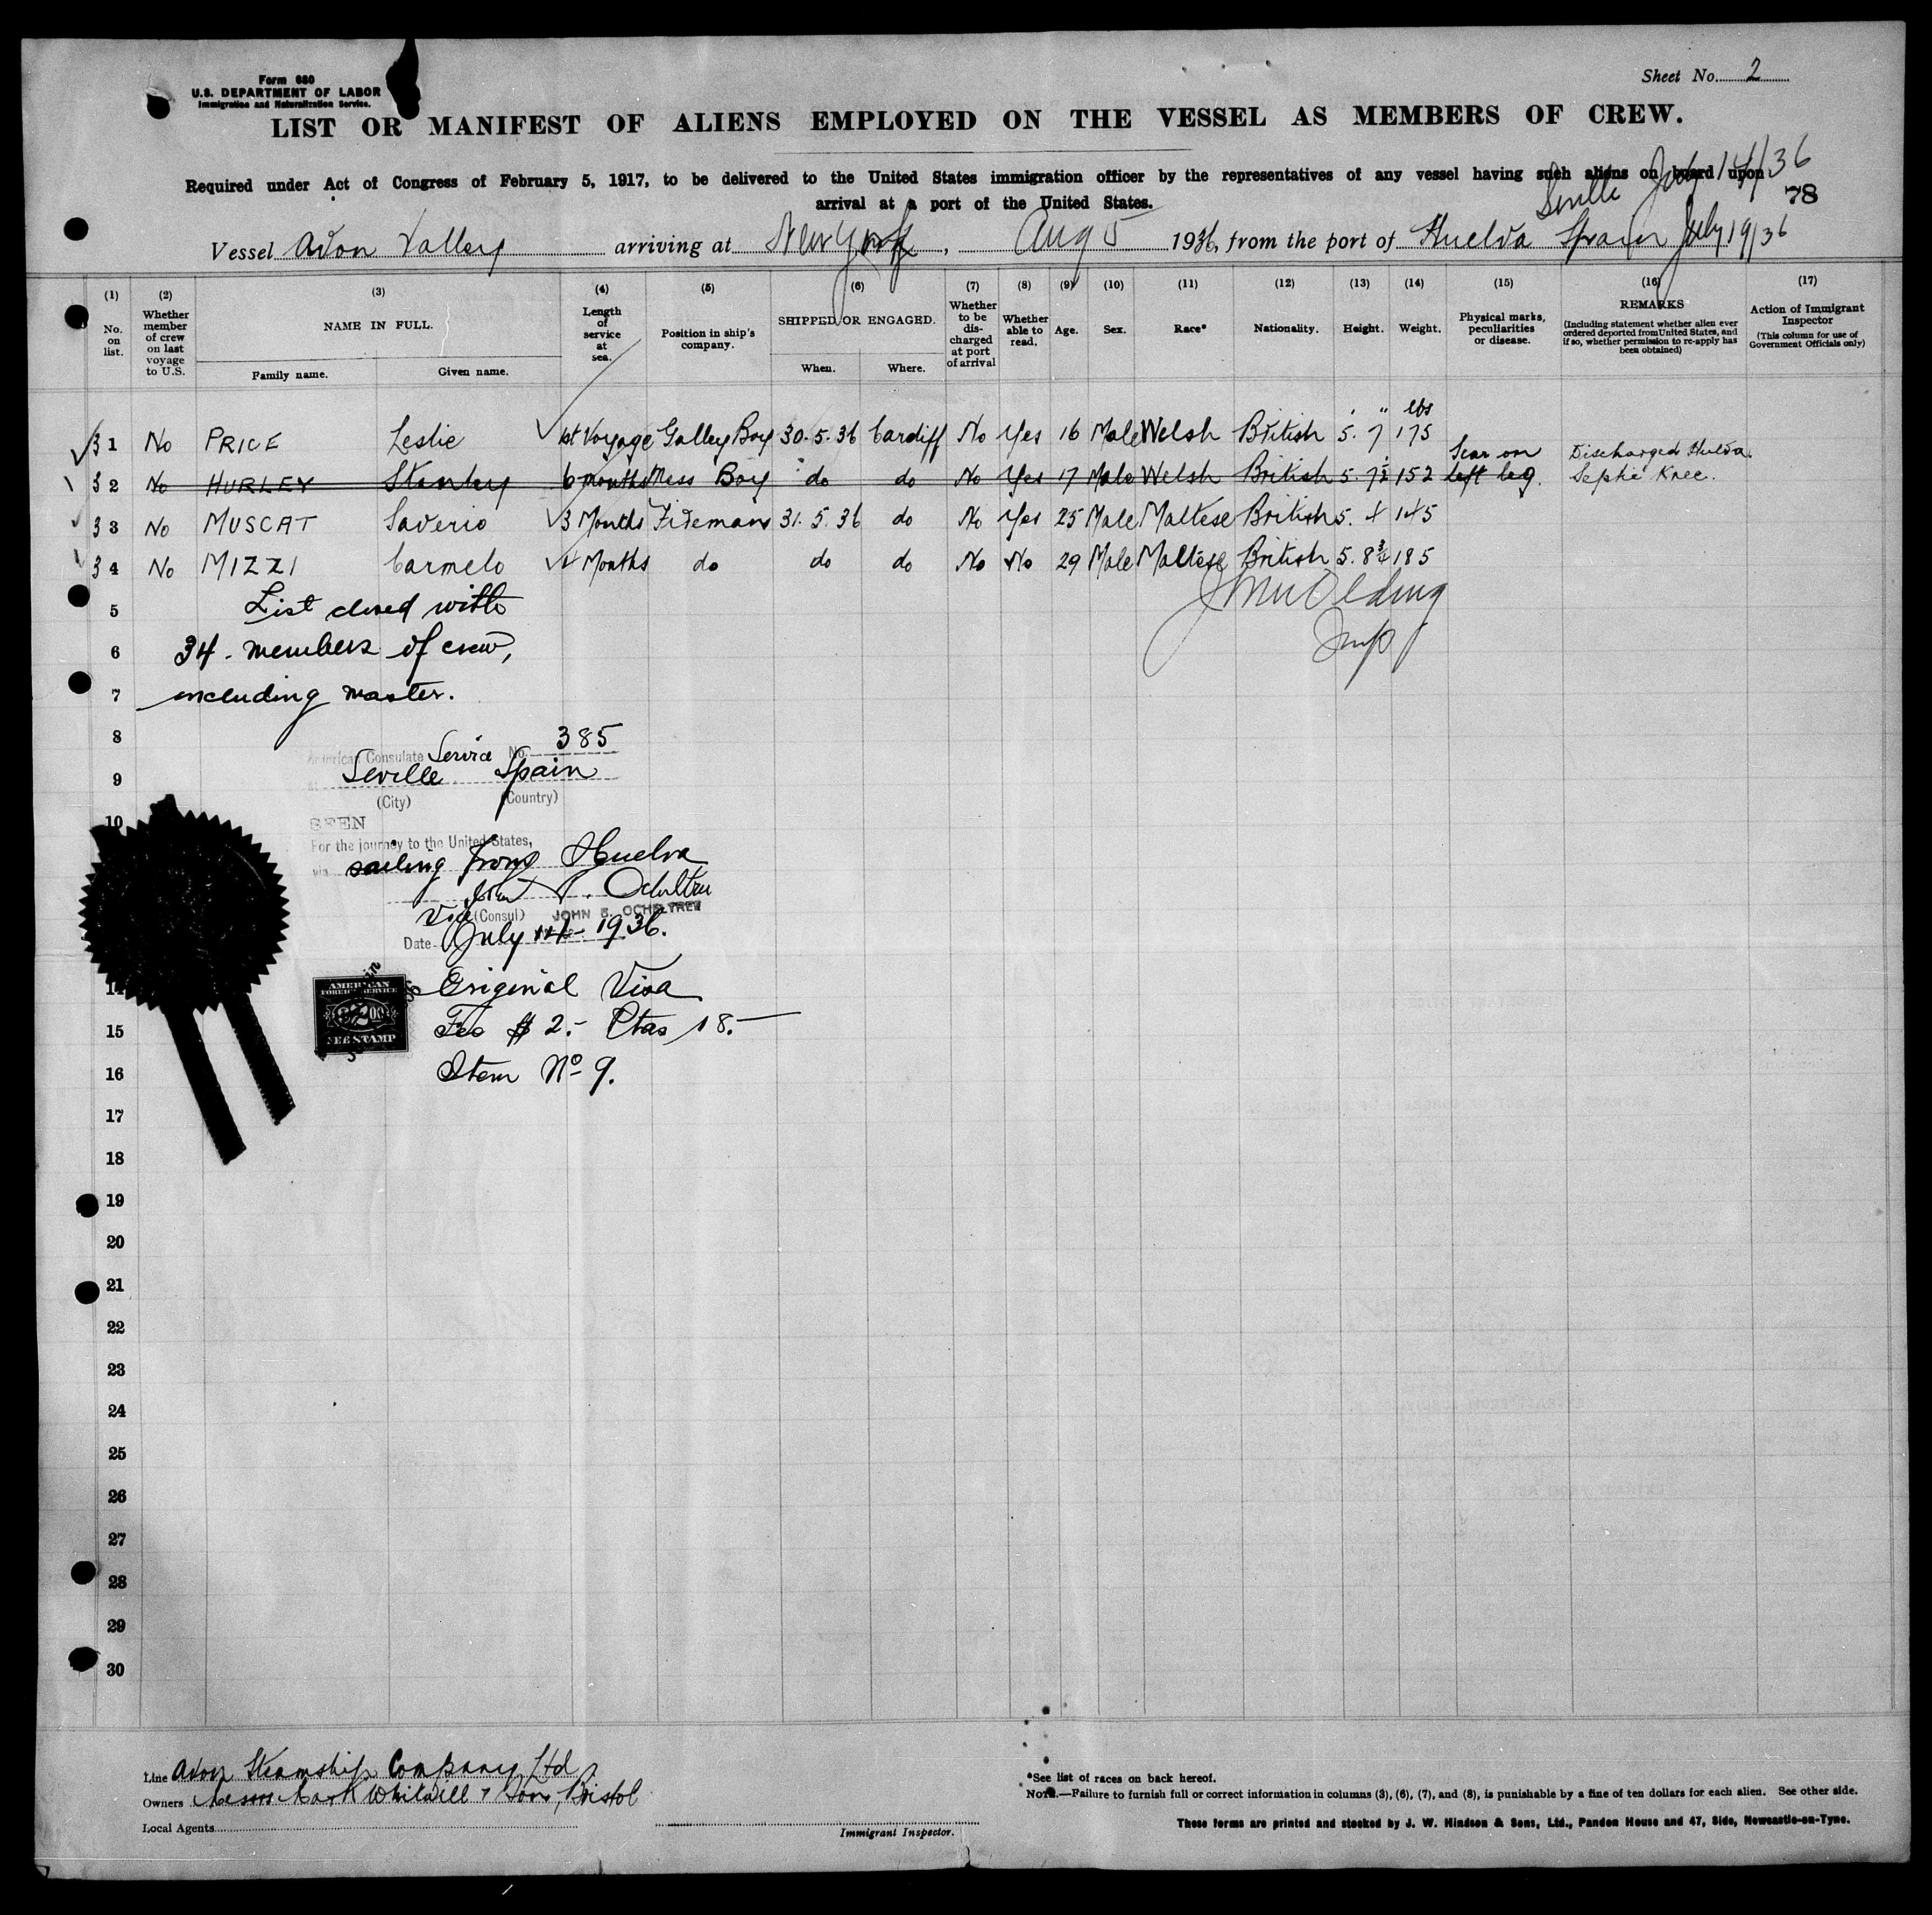 Form 680
U.S. DEPARTMENT OF LABOR
Immigration and Naturalization Service.
Sheet No. 2
LIST OR MANIFEST OF ALIENS EMPLOYED ON THE VESSEL AS MEMBERS OF CREW.
Required under Act of Congress of February 5, 1917, to be delivered to the United States immigration officer by the representatives of any vessel having such aliens on board upon
arrival at a port of the United States.
Seville July 14/36
78
Vessel Avon Valley arriving at New York, Aug 5 1936, from the port of Huelva Spain July 19/36
(1) (2) (3) (4) (5) (6) (7) (8) (9) (10) (11) (12) (13) (14) (15) (16) (17)
No. on list.
Whether member of crew on last voyage to U.S.
NAME IN FULL.
Family name. Given name.
Length of service at sea.
Position in ship's company.
SHIPPED OR ENGAGED.
When. Where.
Whether to be discharged at port of arrival
Whether able to read.
Age.
Sex.
Race*
Nationality.
Height.
Weight.
Physical marks, peculiarities or disease.
REMARKS
(Including statement whether alien ever ordered deported from United States, and if so, whether permission to re-apply has been obtained)
Action of Immigrant Inspector
(This column for use of Government Officials only)
31 No PRICE Leslie 1st Voyage Galley Boy 30.5.36 Cardiff No Yes 16 Male Welsh British 5' 7" 175 lbs
32 No HURLEY Stanley 6 months Mess Boy do do No Yes 17 Male Welsh British 5. 7½ 152 Scar on left leg. Discharged Huelva. Septic Knee.
33 No MUSCAT Saverio 3 Months Firemans 31.5.36 do No Yes 25 Male Maltese British 5. 4 145
34 No MIZZI Carmelo 4 Months do do do No No 29 Male Maltese British 5. 8¾ 185
5 List closed with
6 34 members of crew,
7 including master.
Insp
8
American Consulate Service No. 385
9
Seville Spain
(City) (Country)
10
SEEN
For the journey to the United States,
via sailing from Huelva
Vice (Consul) JOHN B. OCHELTREE
Date July 14 1936.
14
AMERICAN
FOREIGN SERVICE
$2.00
FEE STAMP
Original Visa
15 Fee $ 2.- Ptas 18.-
16 Item No 9.
17
18
19
20
21
22
23
24
25
26
27
28
29
30
Line Avon Steamship Company Ltd
Owners Messrs Mark Whitwill & Son, Bristol
Local Agents
Immigrant Inspector.
*See list of races on back hereof.
NOTE.—Failure to furnish full or correct information in columns (3), (6), (7), and (8), is punishable by a fine of ten dollars for each alien. See other side.
These forms are printed and stocked by J. W. Hindson & Sons, Ltd., Pandon House and 47, Side, Newcastle-on-Tyne.